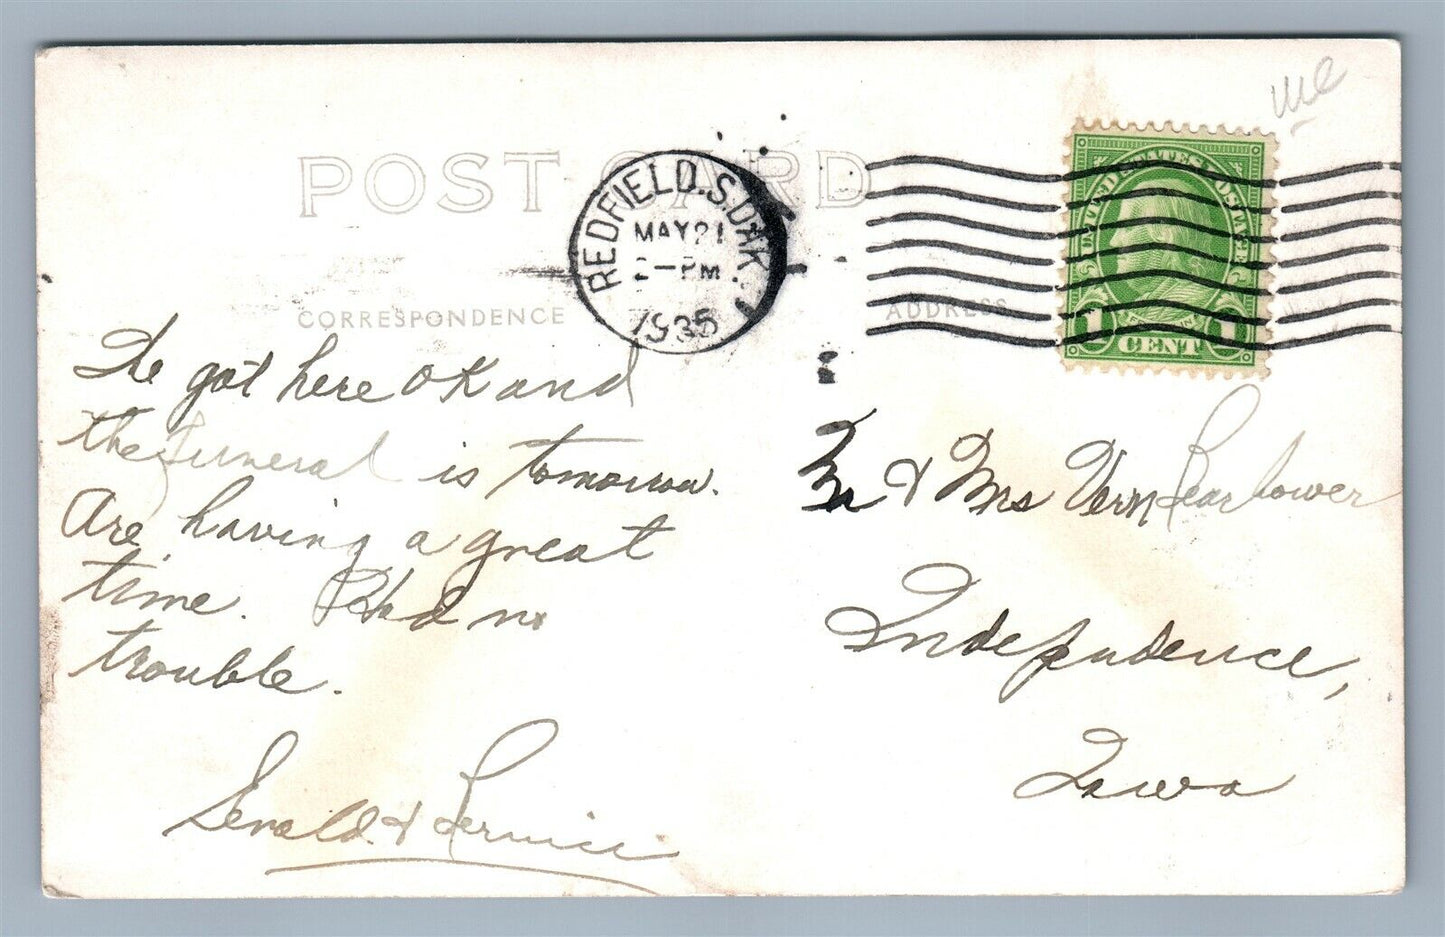 me
POST CARD
REDFIELD. S. DAK.
MAY 21
2-PM
1935
UNITED STATES POSTAGE
FRANKLIN
1 CENT 1
CORRESPONDENCE
ADDRESS
We got here OK and
the funeral is tomorrow.
Are having a great
time. Had no
trouble.
Gerald & Bernice
Mr & Mrs Vern
Independence,
Iowa